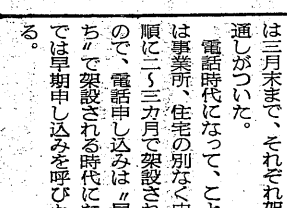 は三月末まで、それぞれ架
通しがついた。
電話時代になって、こと
は事業所、住宅の別なく申
順に二〜三カ月で架設され
ので、電話申し込みは〃
ち〃で架設される時代にな
では早期申し込みを呼びか
る。